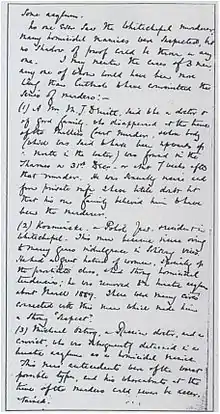 some asylum.
No one ever saw the Whitechapel murderer,
many homicidal maniacs were suspected, but
no shadow of proof could be thrown on any
one. I may mention the cases of 3 men,
any one of whom would have been more
likely than Cutbush to have committed this
series of murders:—
(1) A Mr M. J. Druitt, said to be a doctor &
of good family, who disappeared at the time
of the Miller's Court murder, whose body
(which was said to have been upwards of
a month in the water) was found in the
Thames on 31st Decr. — or about 7 weeks after
that murder. He was sexually insane and
from private info I have little doubt but
that his own family believed him to have
been the murderer.
(2) Kosminski, a Polish Jew, resident in
Whitechapel. This man became insane owing
to many years indulgence in solitary vices.
He had a great hatred of women, specially of
the prostitute class, & had strong homicidal
tendencies; he was removed to a lunatic asylum
about March 1889. There were many circs
connected with this man which made him
a strong "suspect".
(3) Michael Ostrog, a Russian doctor, and a
convict, who was subsequently detained in a
lunatic asylum as a homicidal maniac.
This man's antecedents were of the worst
possible type, and his whereabouts at the
time of the murders could never be ascer-
tained.